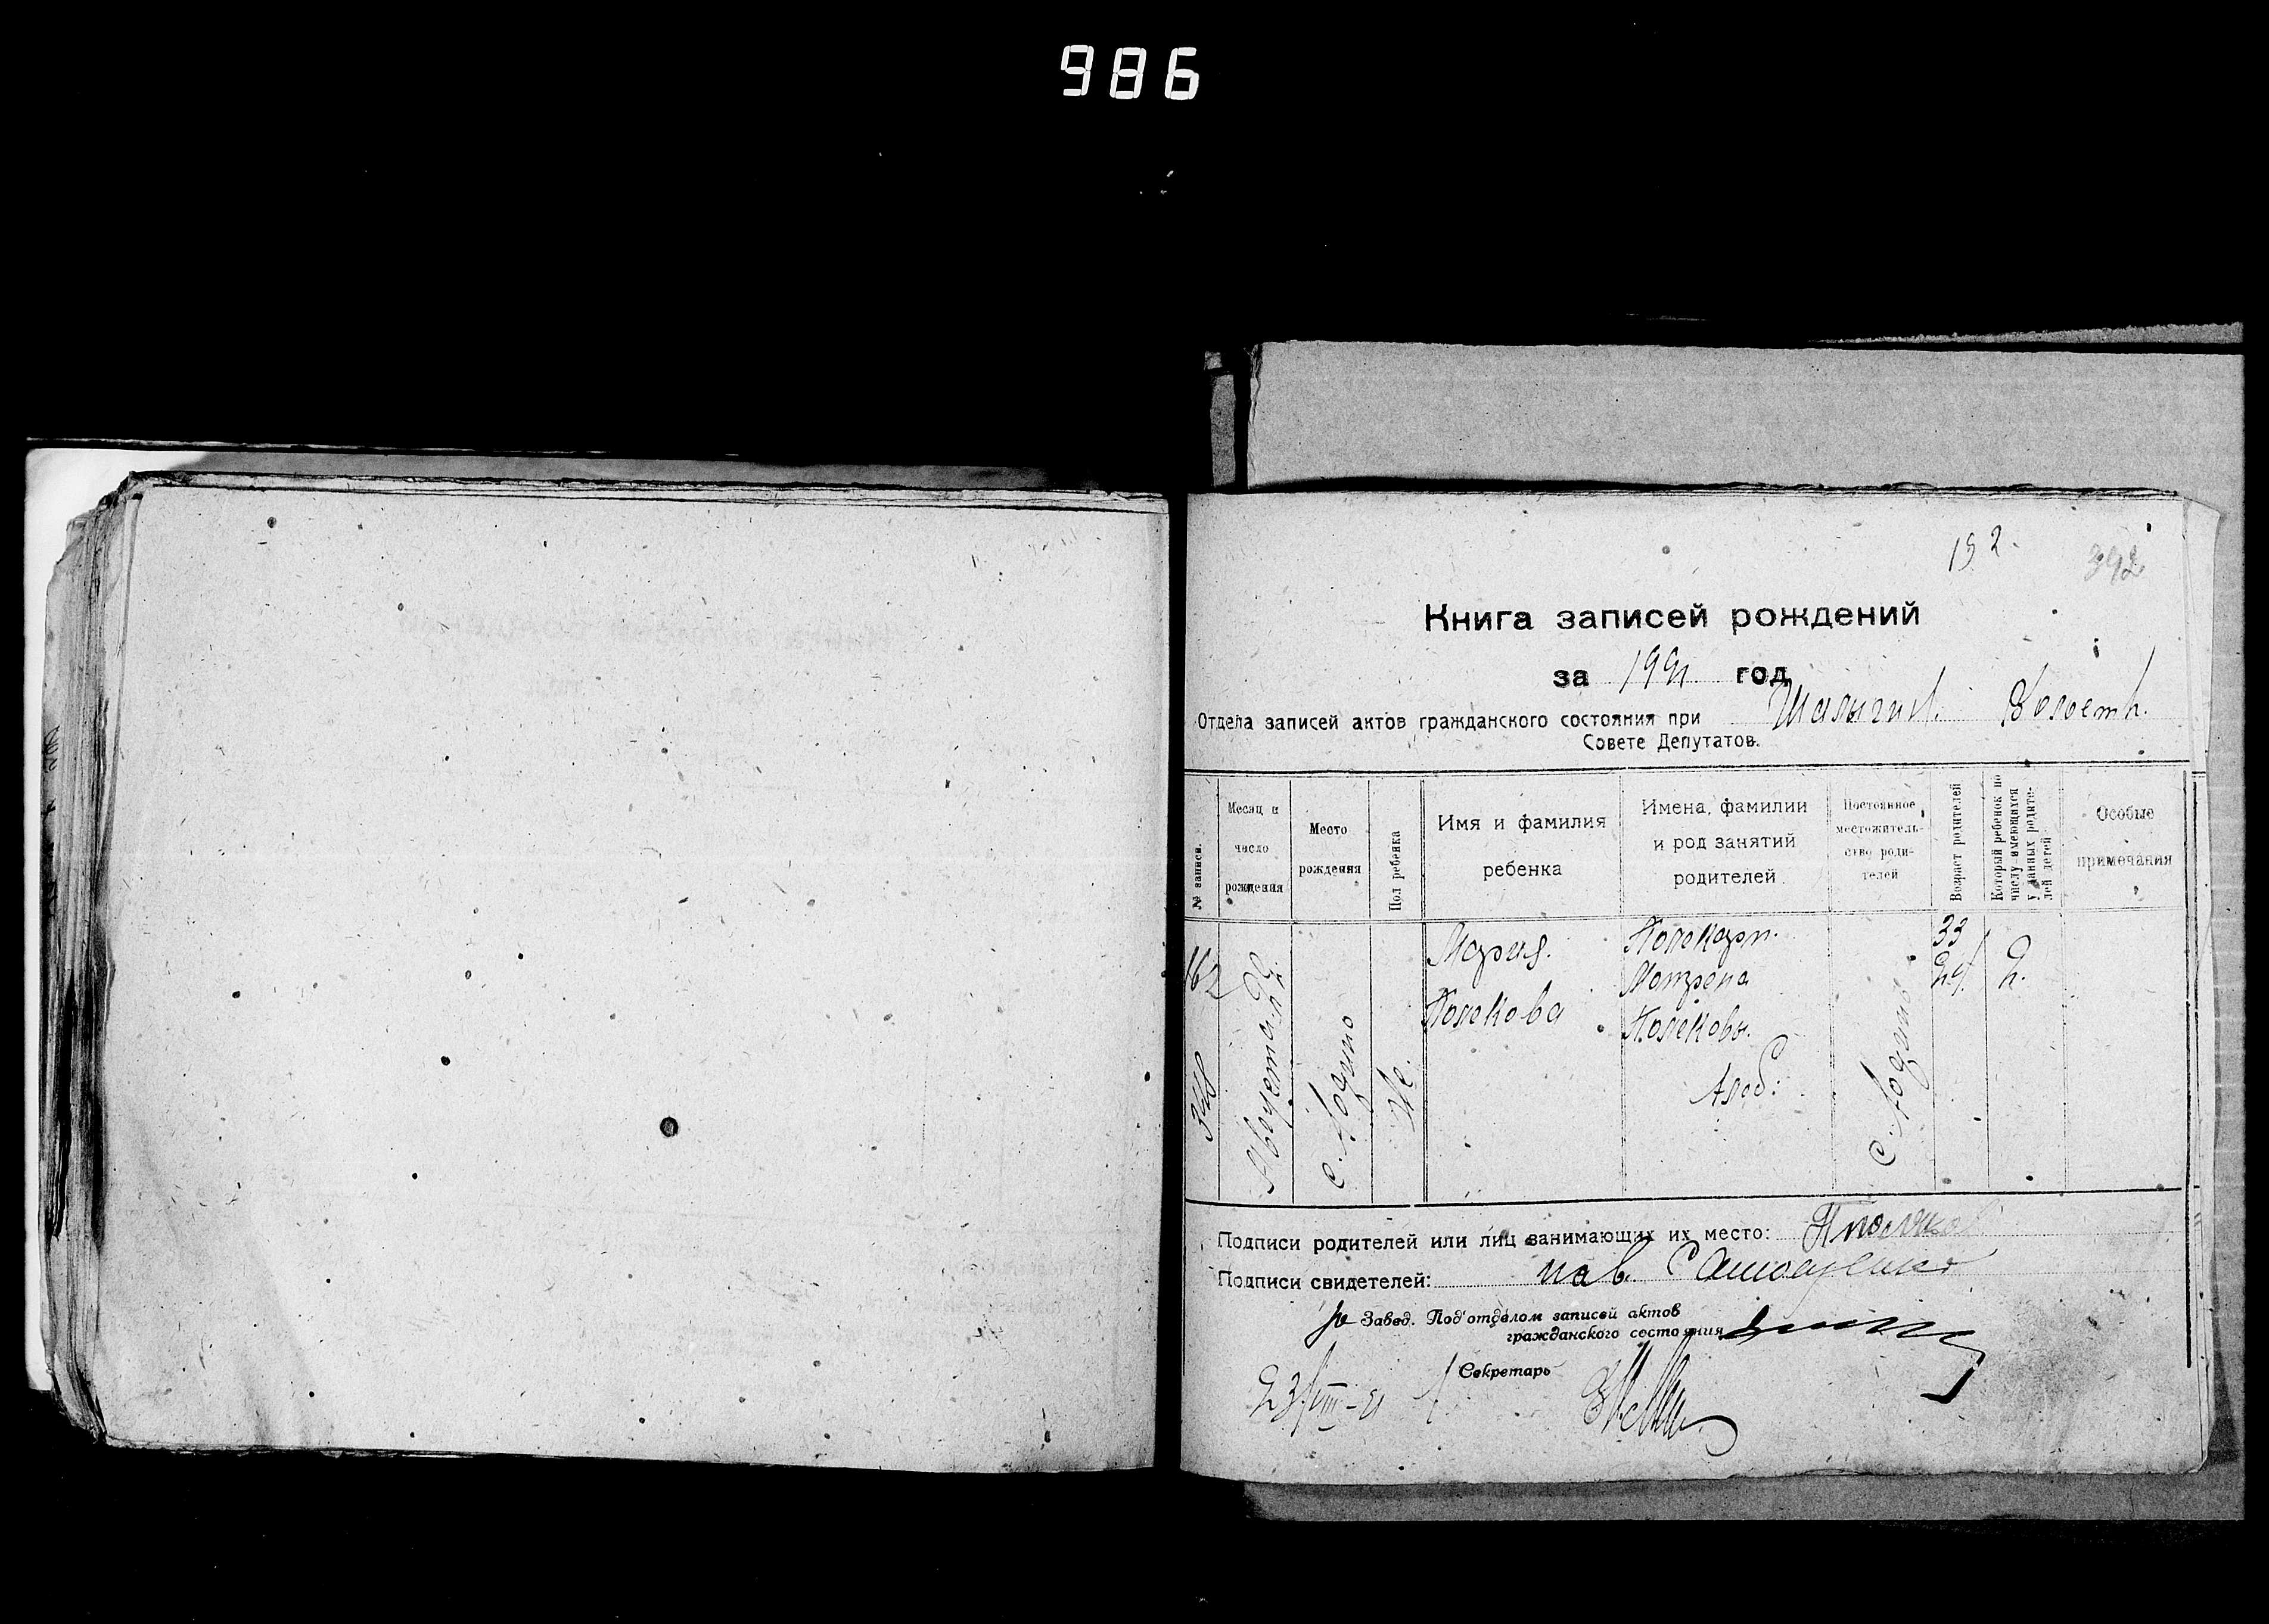 986
192.
392
Книга записей рождений
за 1921 год
Отдела записей актов гражданского состояния при Шалыгин. Волостн.
Совете Депутатов.
№ записи.
Месяц и
число
рождения
Место
рождения
Пол ребенка
Имя и фамилия
ребенка
Имена, фамилии
и род занятий
родителей
Постоянное
местожитель-
ство роди-
телей
Возраст родителей
Который ребенок по
числу имеющихся
у данных родите-
лей детей
Особые
примечания
Августа 22.
Же.
Мария.
Полекова
Полекарп.
Мотрена
Полековы.
Хлеб.
33
29
2.
Подписи родителей или лиц занимающих их место: П Поляков
Подписи свидетелей:
Завед. Под'отделом записей актов
гражданского состояния
Секретарь
23/VIII-21